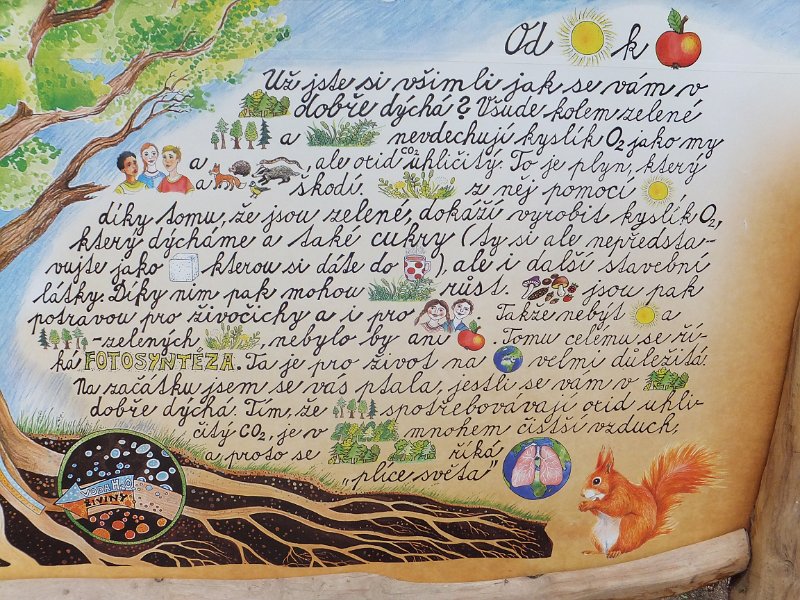 Od k
Už jste si všimli jak se vám v
dobře dýchá? Všude kolem zelené
a nevdechují kyslík O₂ jako my
a , ale oxid CO₂ uhličitý. To je plyn, který
a škodí. z něj pomocí
díky tomu, že jsou zelené, dokáží vyrobit kyslík O₂,
který dýcháme a také cukry (ty si ale nepředsta-
vujte jako kterou si dáte do ), ale i další stavební
látky. Díky nim pak mohou růst. jsou pak
potravou pro živočichy a i pro . Takže nebýt a
-zelených , nebylo by ani . Tomu celému se ří-
ká FOTOSYNTÉZA. Ta je pro život na velmi důležitá.
Na začátku jsem se vás ptala, jestli se vám v
dobře dýchá. Tím, že spotřebovávají oxid uhli-
čitý CO₂, je v mnohem čistší vzduch,
a proto se říká
„plíce světa"
VODA H₂O
ŽIVINY